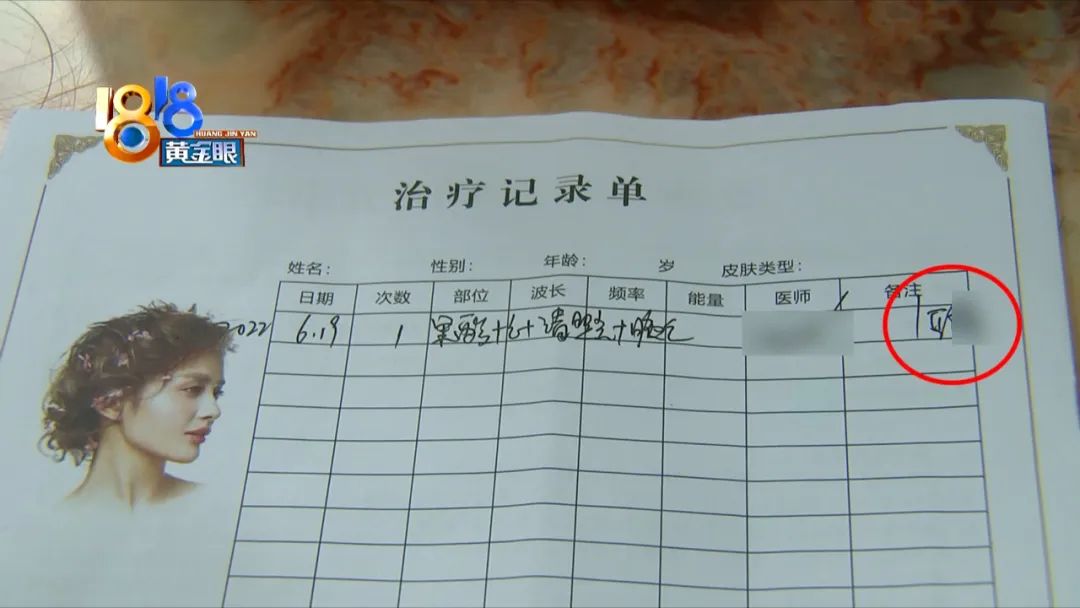 1818
HUANG JIN YAN
黄金眼
治疗记录单
姓名: 性别: 年龄: 岁 皮肤类型:
日期 次数 部位 波长 频率 能量 医师 备注
2022 6.19 1 果酸+